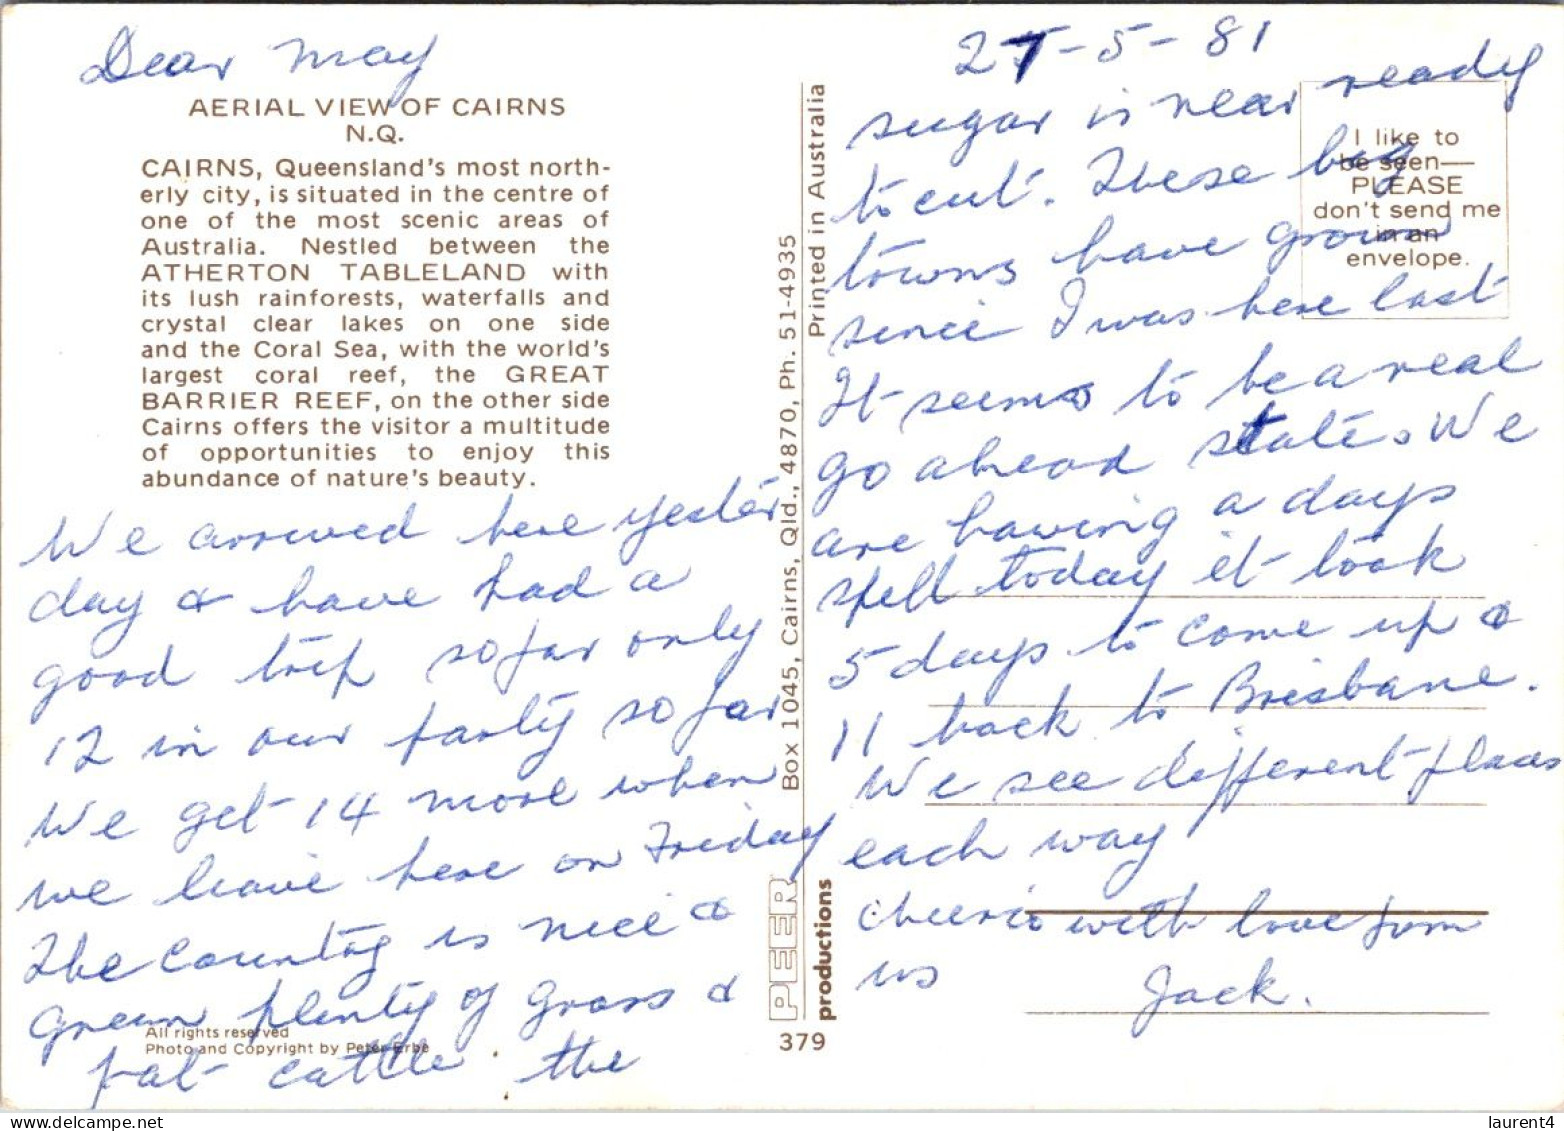 Dear May
AERIAL VIEW OF CAIRNS
N.Q.
CAIRNS, Queensland's most north-
erly city, is situated in the centre of
one of the most scenic areas of
Australia. Nestled between the
ATHERTON TABLELAND with
its lush rainforests, waterfalls and
crystal clear lakes on one side
and the Coral Sea, with the world's
largest coral reef, the GREAT
BARRIER REEF, on the other side
Cairns offers the visitor a multitude
of opportunities to enjoy this
abundance of nature's beauty.
We arrived here yester
day & have had a
good trip so far only
12 in our party so far
We get 14 more when
we leave here on Friday
The Country is nice &
green plenty of grass &
fat cattle. the
All rights reserved
Photo and Copyright by Peter Erbe
Box 1045, Cairns, Qld., 4870, Ph. 51-4935
Printed in Australia
PEER
productions
379
27-5-81
sugar is near ready
to cut. These big
towns have grown
since I was here last
It seems to be a real
go ahead state. We
are having a days
spell today it took
5 days to come up &
11 back to Brisbane.
We see different places
each way
cheerio with love from
us
Jack.
I like to
be seen—
PLEASE
don't send me
in an
envelope.
laurent4